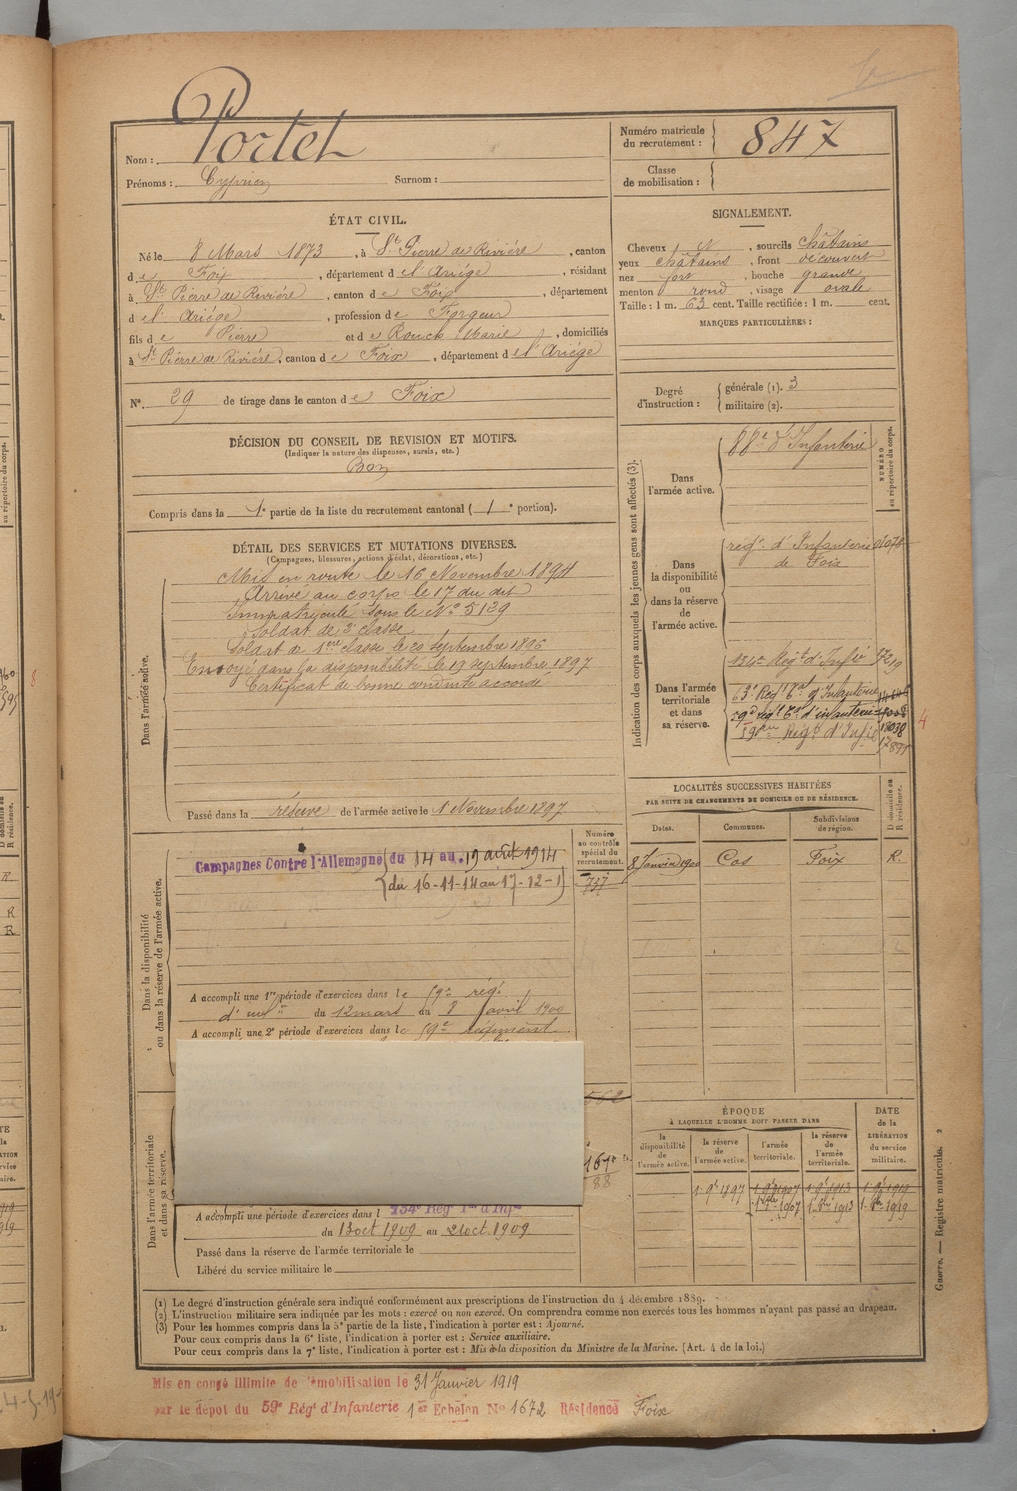 Nom : Portet
Prénoms : Cyprien Surnom :
Numéro matricule du recrutement : 847
Classe de mobilisation :
ÉTAT CIVIL.
Né le 8 Mars 1873, à St Pierre de Rivière, canton
de Foix, département de l'Ariège, résidant
à St Pierre de Rivière, canton de Foix, département
de l'Ariège, profession de Forgeur
fils de Pierre et de Rouch Marie, domiciliés
à St Pierre de Rivière, canton de Foix, département de l'Ariège
N° 29 de tirage dans le canton de Foix
SIGNALEMENT.
Cheveux N, sourcils châtains
yeux châtains, front découvert
nez fort, bouche grande
menton rond, visage ovale
Taille : 1 m. 63 cent. Taille rectifiée : 1 m. cent.
MARQUES PARTICULIÈRES :
Degré d'instruction : générale (1). 3
militaire (2).
DÉCISION DU CONSEIL DE REVISION ET MOTIFS.
(Indiquer la nature des dispenses, sursis, etc.)
Bon
Compris dans la 1e partie de la liste du recrutement cantonal (1e portion).
DÉTAIL DES SERVICES ET MUTATIONS DIVERSES.
(Campagnes, blessures, actions d'éclat, décorations, etc.)
Dans l'armée active.
Mis en route le 16 Novembre 1894
Arrivé au corps le 17 du dit
Immatriculé sous le N° 5139
Soldat de 2e classe
Soldat de 1ère classe le 20 septembre 1896
Envoyé dans la disponibilité le 19 septembre 1897
Certificat de bonne conduite accordé
Passé dans la réserve de l'armée active le 1 Novembre 1897
Indication des corps auxquels les jeunes gens sont affectés (3).
NUMÉRO au répertoire du corps.
Dans l'armée active.
88e d'Infanterie
Dans la disponibilité ou dans la réserve de l'armée active.
regt. d'Infanterie
de Foix
Dans l'armée territoriale et dans sa réserve.
134e Regt d'Infie
63e Regt Tal d'Infanterie
59e regt d'infanterie
Regt d'Infie
18038
LOCALITÉS SUCCESSIVES HABITÉES
PAR SUITE DE CHANGEMENTS DE DOMICILE OU DE RÉSIDENCE.
Dates. Communes. Subdivisions de région. D domicile ou R résidence.
8 Janvier 1900 Cos Foix R.
Dans la disponibilité ou dans la réserve de l'armée active.
Numéro au contrôle spécial du recrutement.
737
Campagnes Contre l'Allemagne du 14 au 19 août 1914
du 16-11-14 au 17-12-1
A accompli une 1re période d'exercices dans le 59e rég.
d'infie du 12 mars au 8 avril 1900
A accompli une 2e période d'exercices dans le 59e régiment
Dans l'armée territoriale et dans sa réserve.
562
1672
88
A accompli une période d'exercices dans l 134e Régt Tal d'Infie
du 13 oct 1909 au 21 oct. 1909
Passé dans la réserve de l'armée territoriale le
Libéré du service militaire le
ÉPOQUE
À LAQUELLE L'HOMME DOIT PASSER DANS
la disponibilité de l'armée active. la réserve de l'armée active. l'armée territoriale. la réserve de l'armée territoriale.
DATE de la LIBÉRATION du service militaire.
1 9e 1897 1 9e 1907 1 9e 1913 1 9e 1919
1 8bre 1907 1 8bre 1913 1 8bre 1919
(1) Le degré d'instruction générale sera indiqué conformément aux prescriptions de l'instruction du 4 décembre 1889.
(2) L'instruction militaire sera indiquée par les mots : exercé ou non exercé. On comprendra comme non exercés tous les hommes n'ayant pas passé au drapeau.
(3) Pour les hommes compris dans la 5e partie de la liste, l'indication à porter est : Ajourné.
Pour ceux compris dans la 6e liste, l'indication à porter est : Service auxiliaire.
Pour ceux compris dans la 7e liste, l'indication à porter est : Mis à la disposition du Ministre de la Marine. (Art. 4 de la loi.)
Guerre. — Registre matricule. 2
Mis en congé illimité de démobilisation le 31 Janvier 1919
par le dépôt du 59e Régt d'Infanterie 1er Echelon No 1672 Résidence Foix